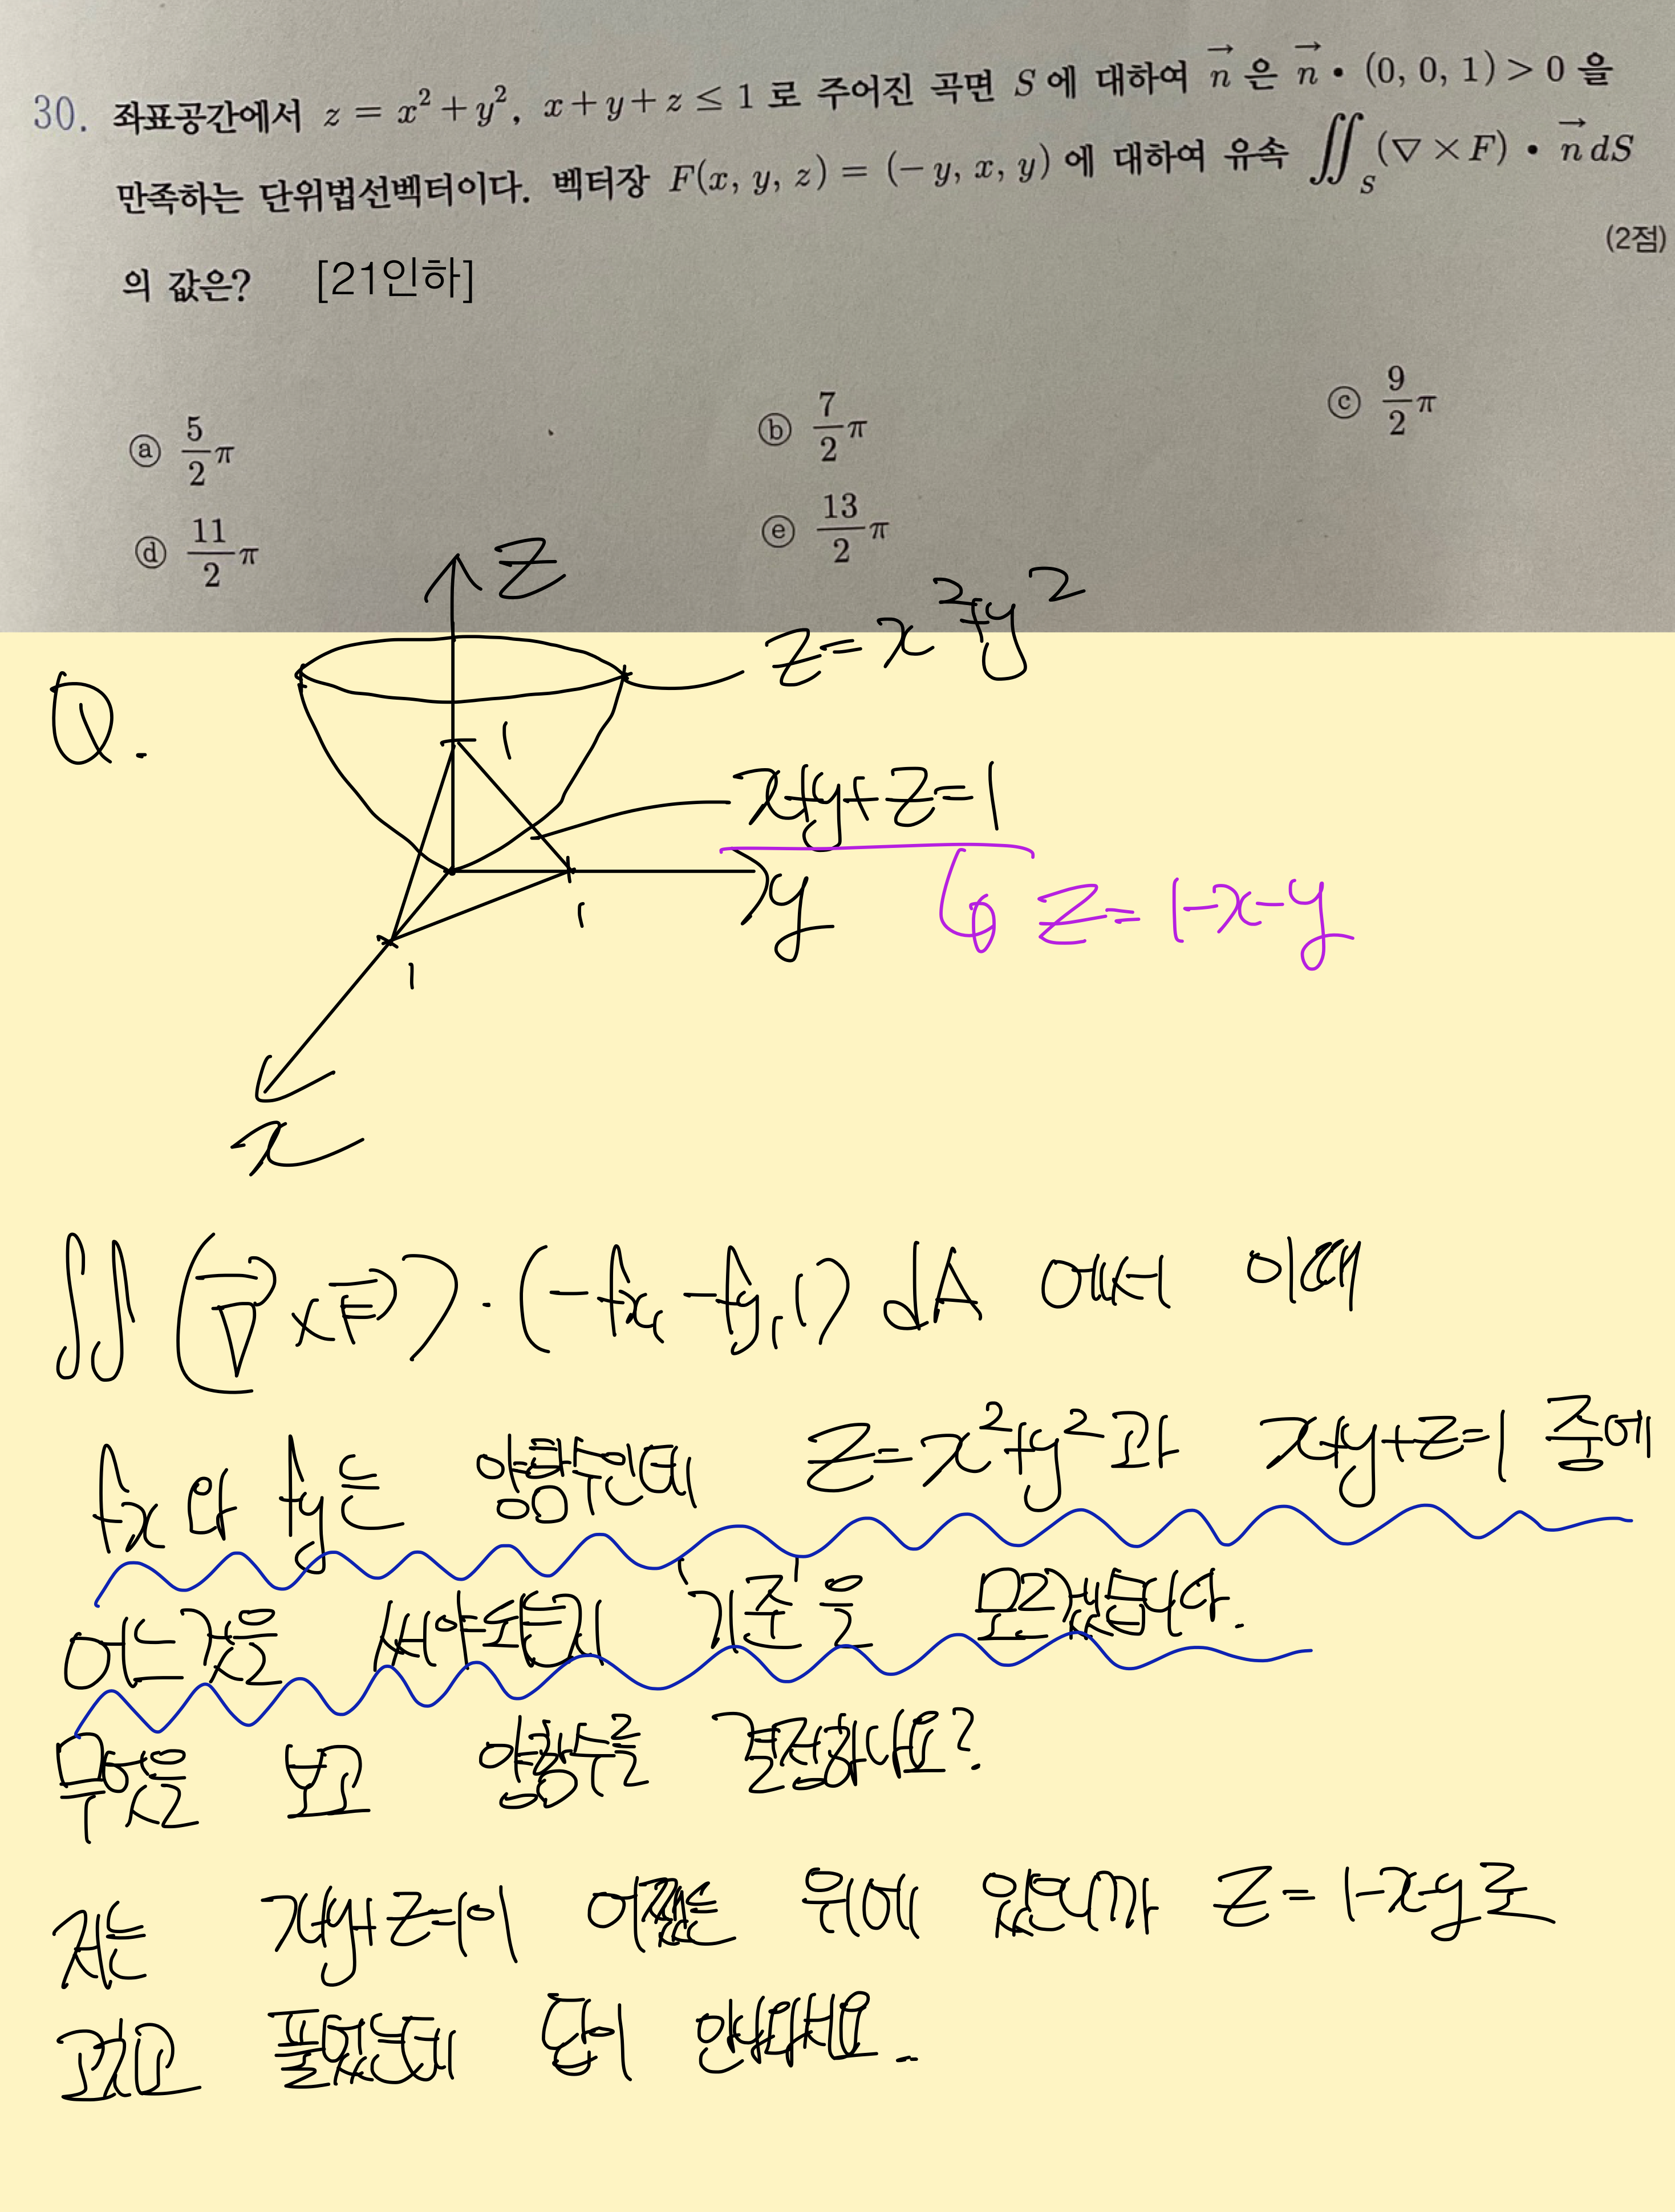 30. 좌표공간에서 z = x² + y², x + y + z ≤ 1 로 주어진 곡면 S 에 대하여 n⃗ 은 n⃗ • (0, 0, 1) > 0 을
만족하는 단위법선벡터이다. 벡터장 F(x, y, z) = (− y, x, y) 에 대하여 유속 ∬_S (∇ × F) • n⃗ dS
(2점)
의 값은? [21인하]
ⓐ 5/2 π ⓑ 7/2 π ⓒ 9/2 π
ⓓ 11/2 π ⓔ 13/2 π
z
z = x² + y²
Q.
1
x+y+z=1
y
z = 1-x-y
1
1
x
∬ (∇⃗ × F⃗) · (-fx, -fy, 1) dA 에서 이때
fx와 fy는 양함수인데 z=x²+y²과 x+y+z=1 중에
어느것을 써야하는지 '기준'을 모르겠습니다.
무엇을 보고 양함수를 결정하나요?
저는 x+y+z=1이 어쨌든 위에 있으니까 z = 1-x-y로
고치고 풀었는데 답이 안나와요..